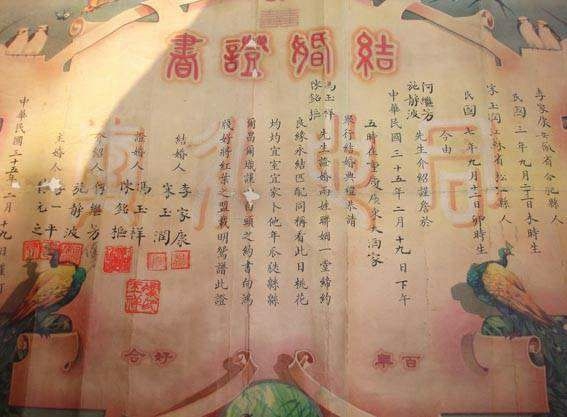 結婚證書
李家康安徽省合肥縣人
民國三年九月二日未時生
宋玉潤江蘇省松江縣人
民國七年九月廿二日卯時生
今由
施靜波
先生介紹謹詹於
中華民國三十五年二月十九日下午
五時在重慶廣東大酒家
舉行結婚典禮恭請
馮玉祥
陳銘樞
先生證婚兩姓聯姻一堂締約
良緣永結匹配同稱看此日桃花
灼灼宜室宜家卜他年瓜瓞緜緜
爾昌爾熾謹以白頭之約書向鴻
牋好將紅葉之盟載明鴛譜此證
結婚人 李家康
宋玉潤
證婚人 馮玉祥
陳銘樞
介紹人
施靜波
主婚人
元之
中華民國三十五年二月十九日謹訂
百年好合